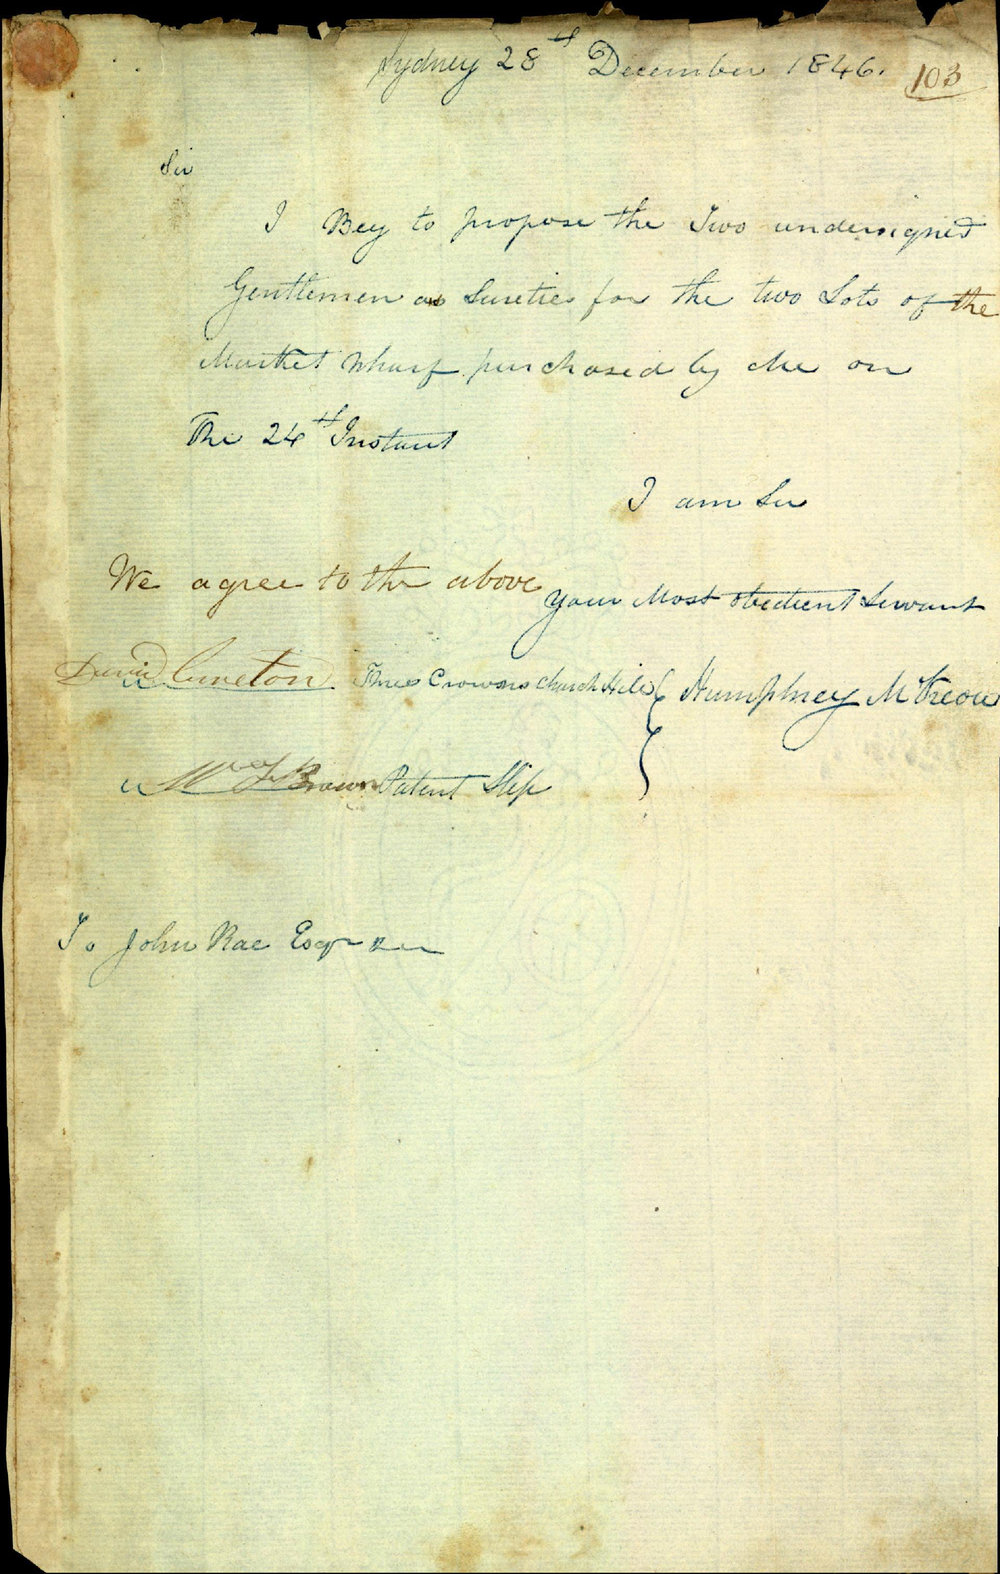 Sydney 28th December 1846.
103
Sir
I Beg to propose the Two undersigned
Gentlemen as Suretie for the two Lots of the
Market Wharf purchased by Me on
The 24th Instant
I am Sir
We agree to the above
Your Most obedient Servant
David Cureton Three Crowns Church Hill
Humphrey
Wm Brown Patent Slip
To John Rae Esqr